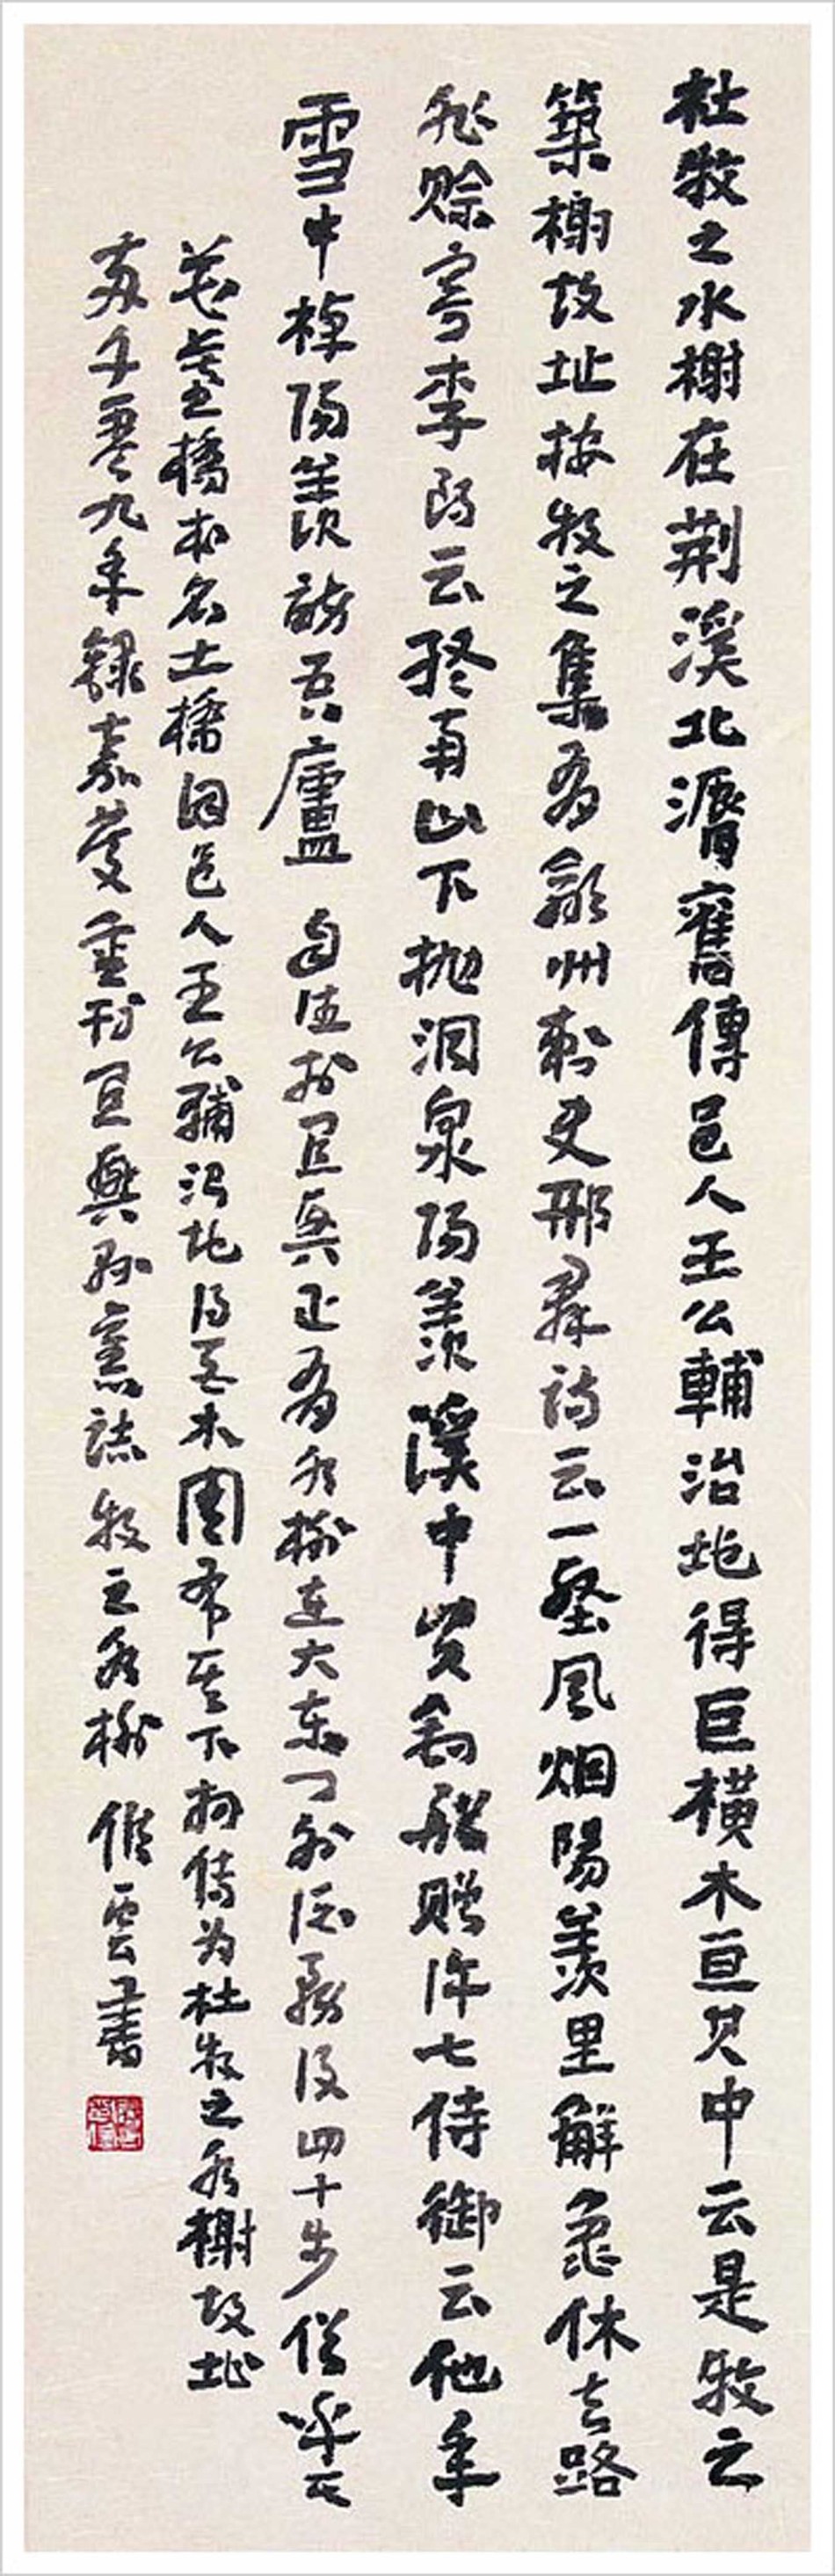 杜牧之水榭在荆溪北漘舊傳邑人王公輔治地得巨横木亘其中云是牧之
築榭故址按牧之集有歙州刺史邢羣詩云一壑風烟陽羡里解龜休去路
非賒寄李郎云終南山下抛洞泉陽羡溪中買釣船贈许七侍御云他年
雪中棹陽羡訪吾廬 自注於宜興正有水榭在大东门外 後四十步俗呼
花盆橋本名土橋因邑人王公輔治地得巨木 下 相傳为杜牧之水榭故址
零九年錄嘉慶重刊宜興縣舊誌牧之水榭 雲書